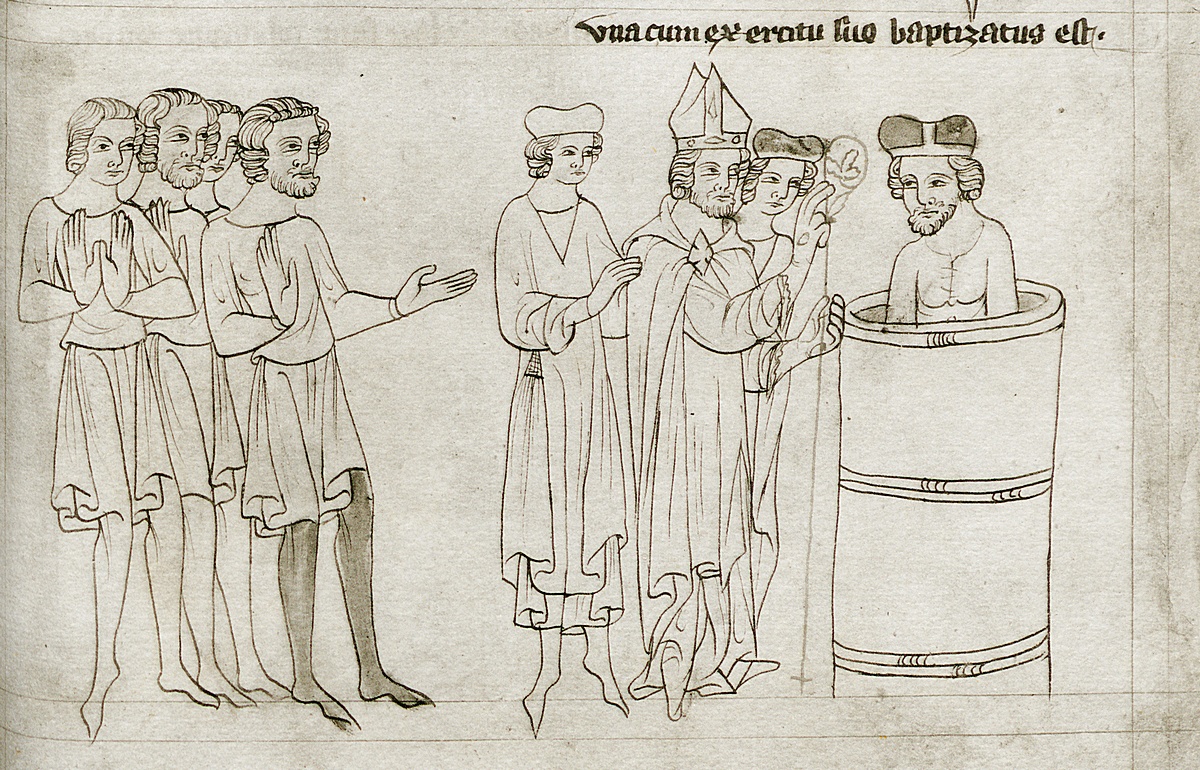 vna cum exercitu suo baptizatus est.